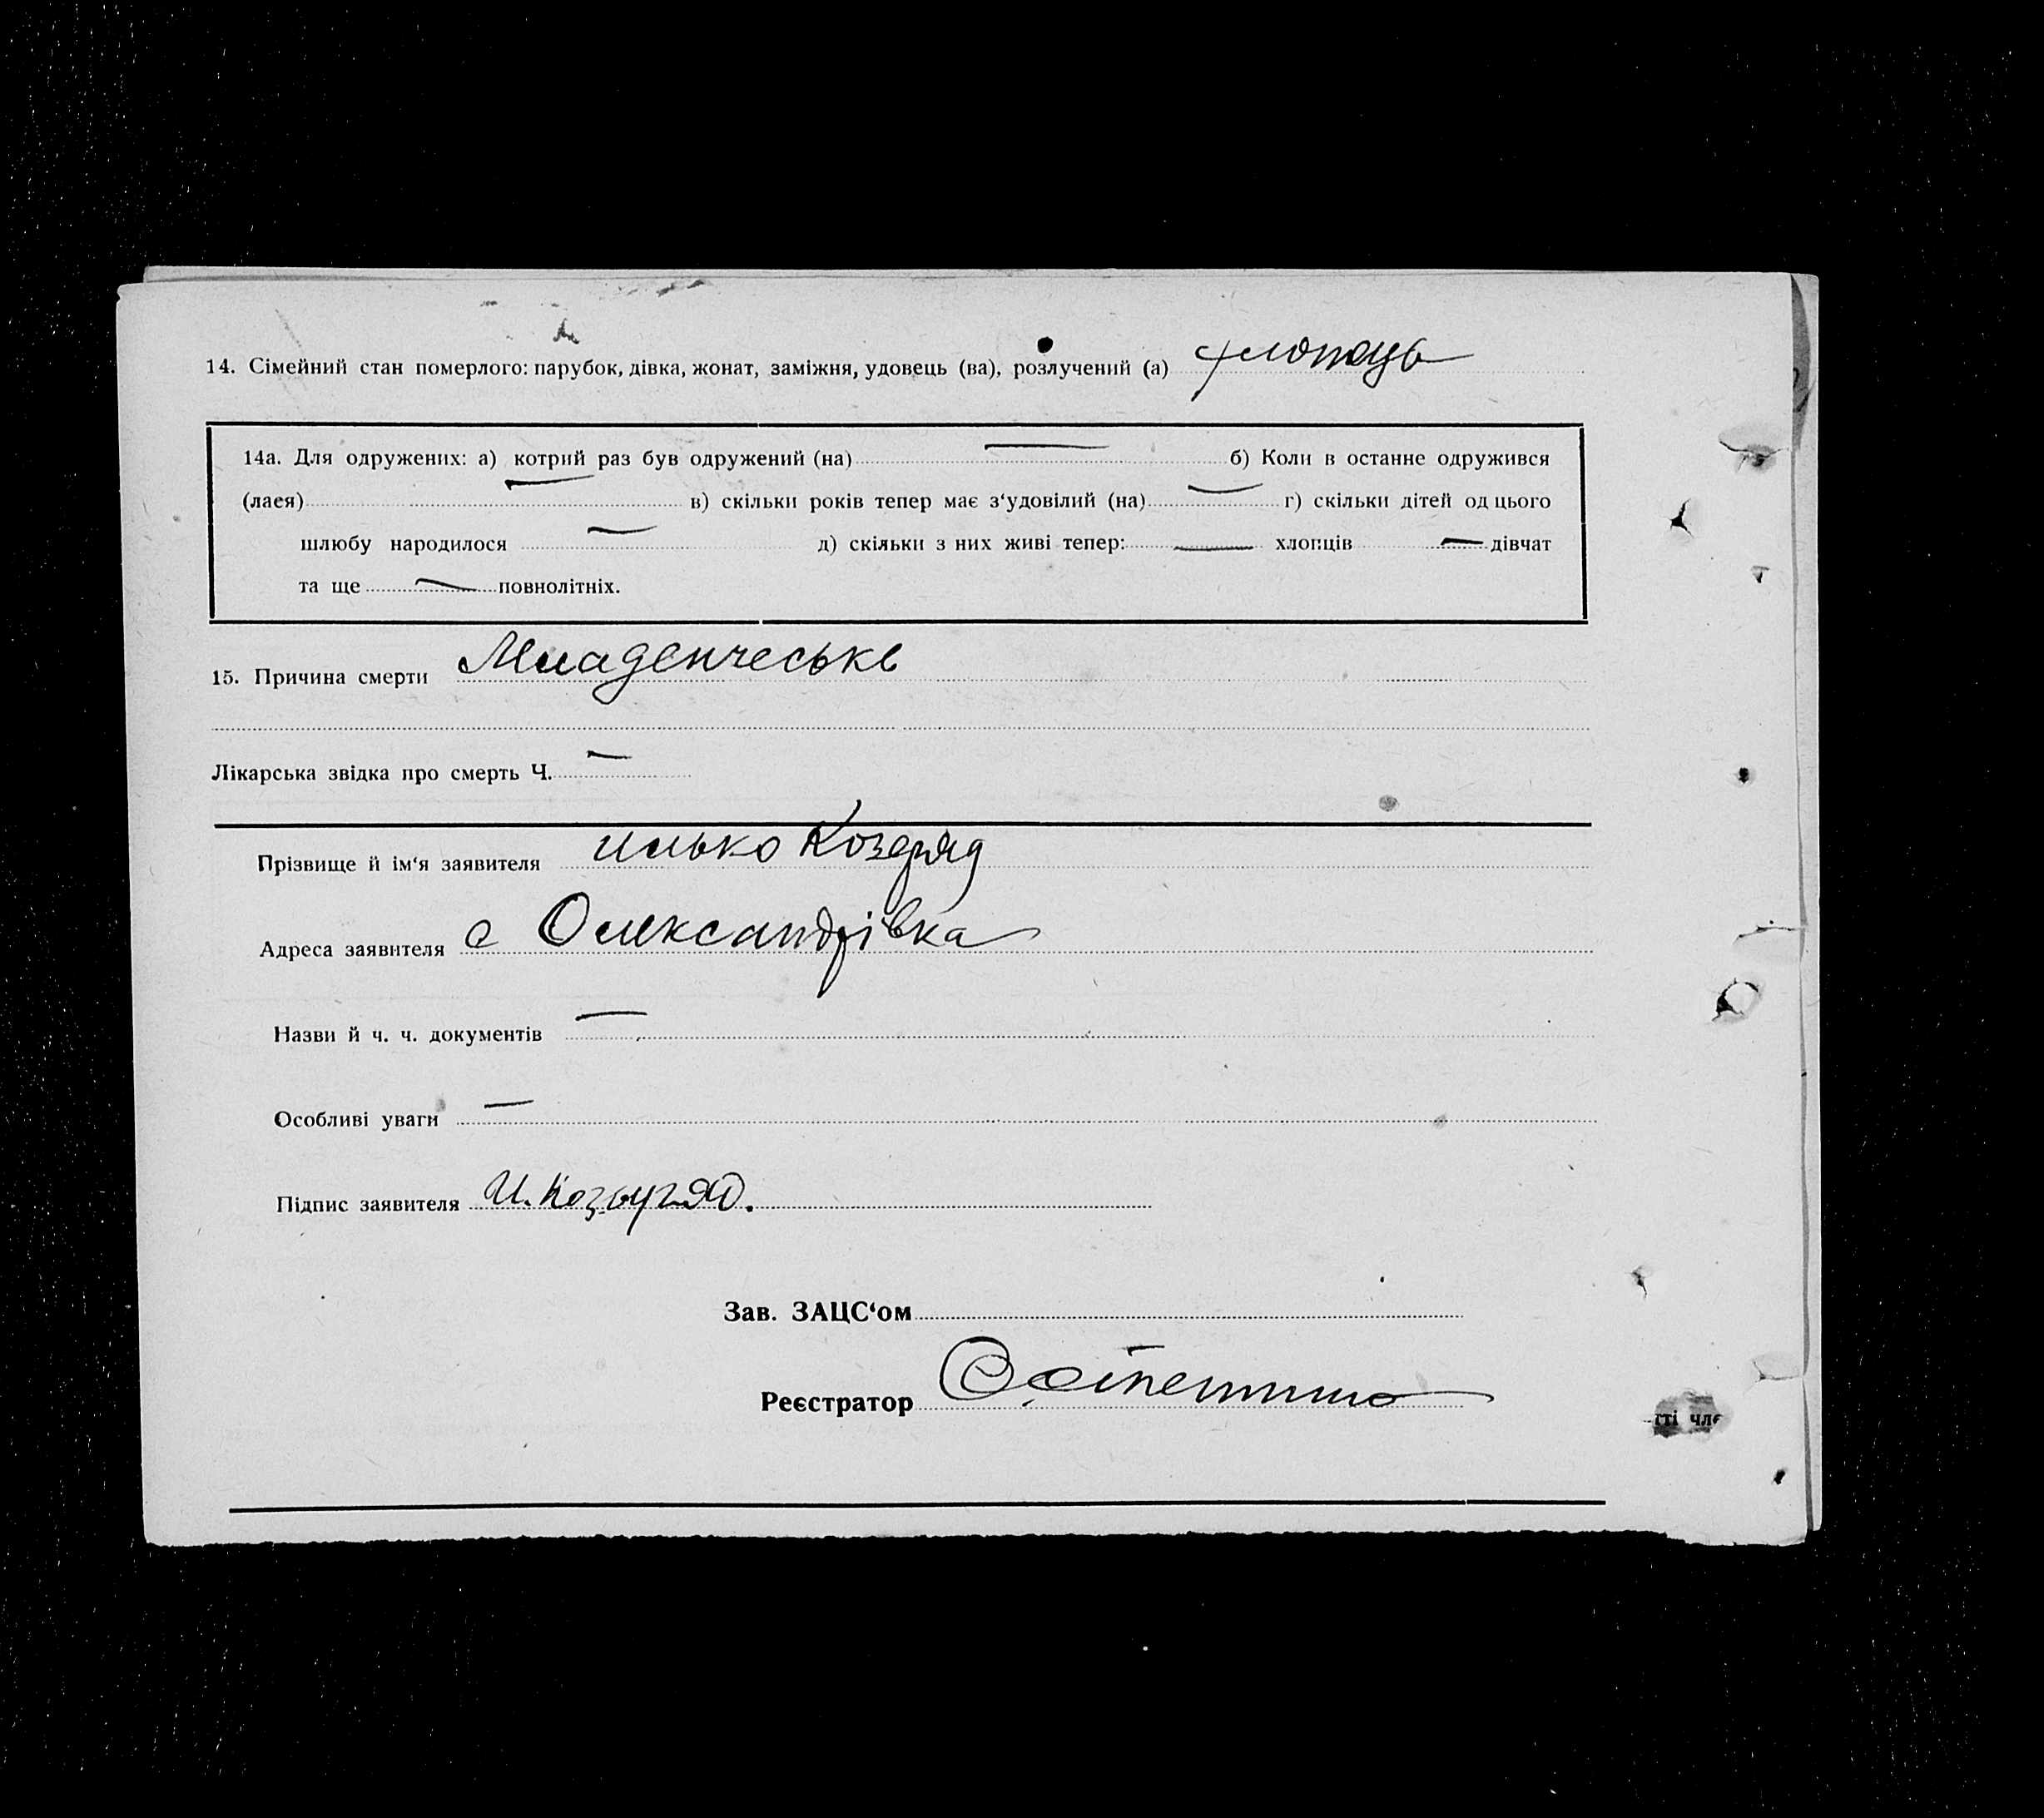 14. Сімейний стан померлого: парубок, дівка, жонат, заміжня, удовець (ва), розлучений (а) хлопець
14а. Для одружених: а) котрий раз був одружений (на) — б) Коли в останне одружився
(лаея) — в) скільки років тепер має з‘удовілий (на) — г) скільки дітей од цього
шлюбу народилося — д) скільки з них живі тепер: — хлопців — дівчат
та ще — повнолітніх.
15. Причина смерти Младенчеське
Лікарська звідка про смерть Ч. —
Прізвище й ім‘я заявителя илько Козеряд
Адреса заявителя с Олександрівка
Назви й ч. ч. документів —
Особливі уваги —
Підпис заявителя И.
Зав. ЗАЦС‘ом
Реєстратор
гті чле